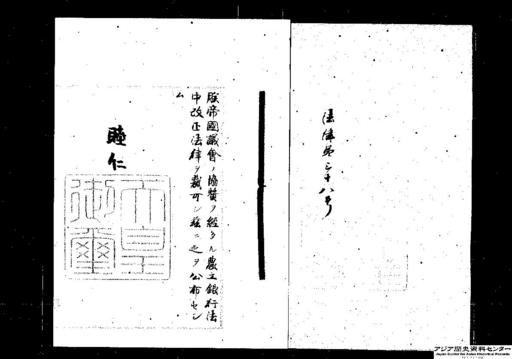 法律第三十八号
朕帝國議會ノ協賛ヲ經タル農工銀行法
中改正法律ヲ裁可シ茲ニ之ヲ公布セシ
ム
睦仁
天皇
御璽
アジア歴史資料センター
Japan Center for Asian Historical Records